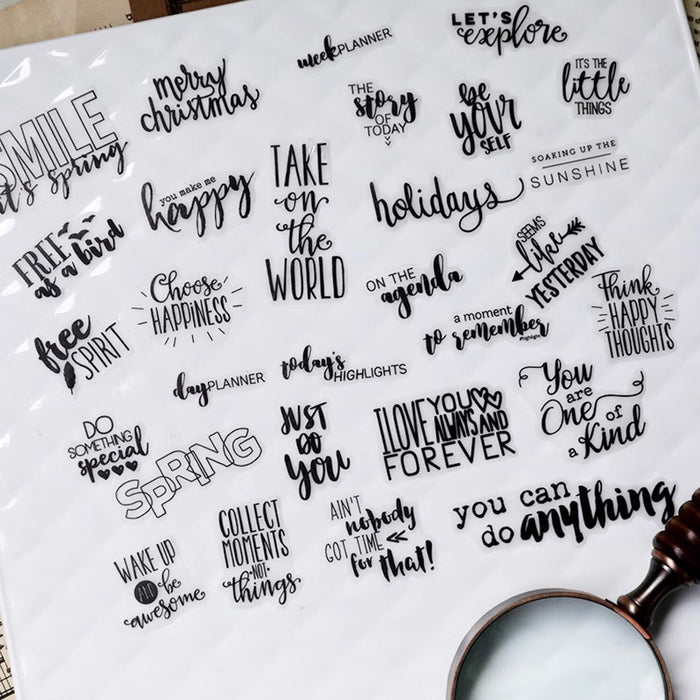 LET'S
explore
week PLANNER
merry
christmas
THE
story
OF
TODAY
be
YOUR
SELF
IT'S THE
little
THINGS
SMILE
it's spring
TAKE
on
the
WORLD
SOAKING UP THE
SUNSHINE
you make me
happy
holidays
FREE
as a bird
SEEMS
like
YESTERDAY
ON THE
agenda
Choose
HAPPINESS
Think
HAPPY
THOUGHTS
a moment
to remember
#highlight
free
SPIRIT
today's
HIGHLIGHTS
day PLANNER
You
are
One of
a Kind
DO
SOMETHING
special
JUST
DO
YOU
I LOVE YOU
ALWAYS AND
FOREVER
SPRING
you can
do anything
COLLECT
MOMENTS
NOT
things
AIN'T
nobody
GOT TIME
for that!
WAKE UP
AND be
awesome